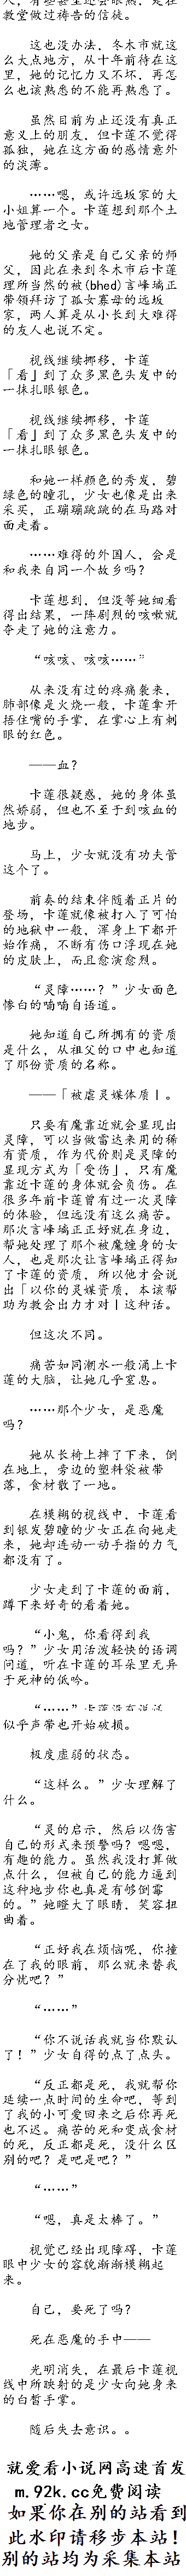 教堂做过祷告的信徒。
这也没办法，冬木市就这
么大点地方，从十年前待在这
里，她的记忆力又不坏，再怎
么也该熟悉的不能再熟悉了。
虽然目前为止还没有真正
意义上的朋友，但卡莲不觉得
孤独，她在这方面的感情意外
的淡薄。
……嗯，或许远坂家的大
小姐算一个。卡莲想到那个土
地管理者之女。
她的父亲是自己父亲的师
父，因此在来到冬木市后卡莲
理所当然的被(bhed)言峰璃正
带领拜访了孤女寡母的远坂
家，两人算是从小长到大难得
的友人也说不定。
视线继续挪移，卡莲
「看」到了众多黑色头发中的
一抹扎眼银色。
视线继续挪移，卡莲
「看」到了众多黑色头发中的
一抹扎眼银色。
和她一样颜色的秀发，碧
绿色的瞳孔，少女也像是出来
采买，正蹦蹦跳跳的在马路对
面走着。
……难得的外国人，会是
和我来自同一个故乡吗？
卡莲想到，但没等她细看
得出结果，一阵剧烈的咳嗽就
夺走了她的注意力。
“咳咳、咳咳……”
从来没有过的疼痛袭来，
肺部像是火烧一般，卡莲拿开
捂住嘴的手掌，在掌心上有刺
眼的红色。
——血？
卡莲很疑惑，她的身体虽
然娇弱，但也不至于到咳血的
地步。
马上，少女就没有功夫管
这个了。
前奏的结束伴随着正片的
登场，卡莲就像被打入了可怕
的地狱中一般，浑身上下都开
始作痛，不断有伤口浮现在她
的皮肤上，而且愈演愈烈。
“灵障……？”少女面色
惨白的喃喃自语道。
她知道自己所拥有的资质
是什么，从祖父的口中也知道
了那份资质的名称。
——「被虐灵媒体质」。
只要有魔靠近就会显现出
灵障，可以当做雷达来用的稀
有资质，作为代价则是灵障的
显现方式为「受伤」，只有魔
靠近卡莲的身体就会负伤。在
很多年前卡莲曾有过一次灵障
的体验，但远没有这么痛苦。
那次言峰璃正正好就在身边，
帮她处理了那个被魔缠身的女
人，也是那次让言峰璃正得知
了卡莲的资质，所以他才会说
出「以你的灵媒资质，本该帮
助为教会出力才对」这种话。
但这次不同。
痛苦如同潮水一般涌上卡
莲的大脑，让她几乎窒息。
……那个少女，是恶魔
吗？
她从长椅上摔了下来，倒
在地上，旁边的塑料袋被带
落，食材散了一地。
在模糊的视线中，卡莲看
到银发碧瞳的少女正在向她走
来，她却连动一动手指的力气
都没有了。
少女走到了卡莲的面前，
蹲下来好奇的看着她。
“小鬼，你看得到我
吗？”少女用活泼轻快的语调
问道，听在卡莲的耳朵里无异
于死神的低吟。
“……”卡莲没有说话
似乎声带也开始破损。
极度虚弱的状态。
“这样么。”少女理解了
什么。
“灵的启示，然后以伤害
自己的形式来预警吗？嗯嗯，
有趣的能力。虽然我没打算做
点什么，但被自己的能力逼到
这种地步你也真是有够倒霉
的。”她瞪大了眼睛，笑容扭
曲着。
“正好我在烦恼呢，你撞
在了我的眼前，那么就来替我
分忧吧？”
“……”
“你不说话我就当你默认
了！”少女自得的点了点头。
“反正都是死，我就帮你
延续一点时间的生命吧，等到
了我的小可爱回来之后你再死
也不迟。痛苦的死和变成食材
的死，反正都是死，没什么区
别的吧？是吧是吧？”
“……”
“嗯，真是太棒了。”
视觉已经出现障碍，卡莲
眼中少女的容貌渐渐模糊起
来。
自己，要死了吗？
死在恶魔的手中——
光明消失，在最后卡莲视
线中所映射的是少女向她身来
的白皙手掌。
随后失去意识。。
就爱看小说网高速首发
m.92k.cc免费阅读
如果你在别的站看到
此水印请移步本站！
别的站均为采集本站